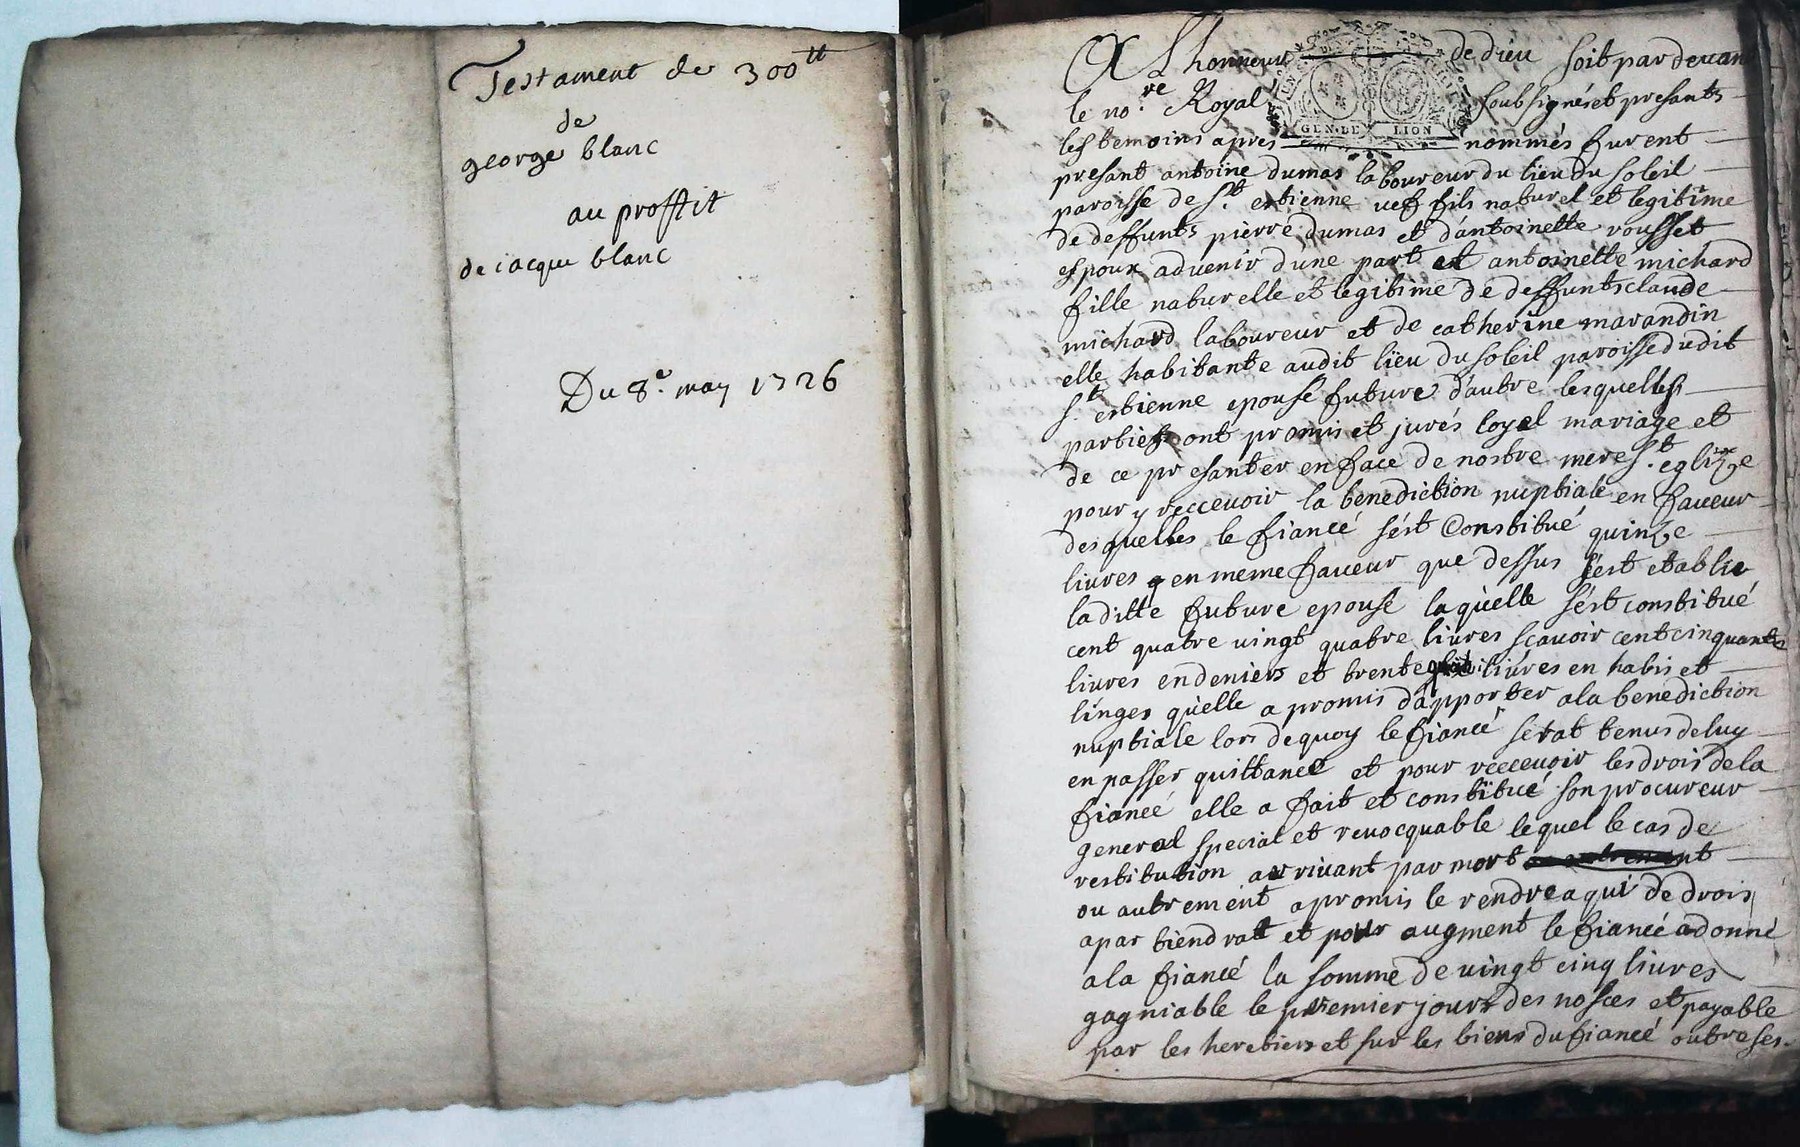 Testament de 300tt
de
george blanc
au proffit
de iacque blanc
Du 8e. may 1726
A Lhonneur de dieu soit par devant
le nore. Royal soubsignés et presants
GEN. DE LION
les temoins apres nommés furent
presant antoine dumas laboureur du lieu du soleil
paroisse de St. estienne uef fils naturel et legitime
de deffunts pierre dumas et d'antoinette rousset
espoux aduenir dune part et antoinette michard
fille naturelle et legitime de deffunts claude
michard laboureur et de catherine marandin
elle habitante audit lieu du soleil paroisse dudit
St estienne epouse future d'autre lesquelles
parties ont promis et jurés loyal mariage et
de ce presanter en face de nostre mere St. eglize
pour y reccevoir la benediction nuptiale en faveur
desquelles le fiancé s'est Constitué quinze
livres en meme faveur que dessus s'est etablie
laditte future epouse laquelle s'est constitué
cent quatre vingt quatre livres scavoir cent cinquante
livres en deniers et trente livres en habis et
linges qu'elle a promis d'apporter a la benediction
nuptiale lors de quoy le fiancé serat tenus de luy
en passer quittance et pour reccevoir les drois de la
fiancé elle a fait et constitué son procureur
general special et revocquable lequel le cas de
restitution arrivant par mort
ou autrement a promis le rendre a qui de drois
apartiendrat et pour augment le fiancé a donné
a la fiancé la somme de vingt cinq livres
gagniable le premier jours des nosces et payable
par les heretiers et sur les biens du fiancé outre ses